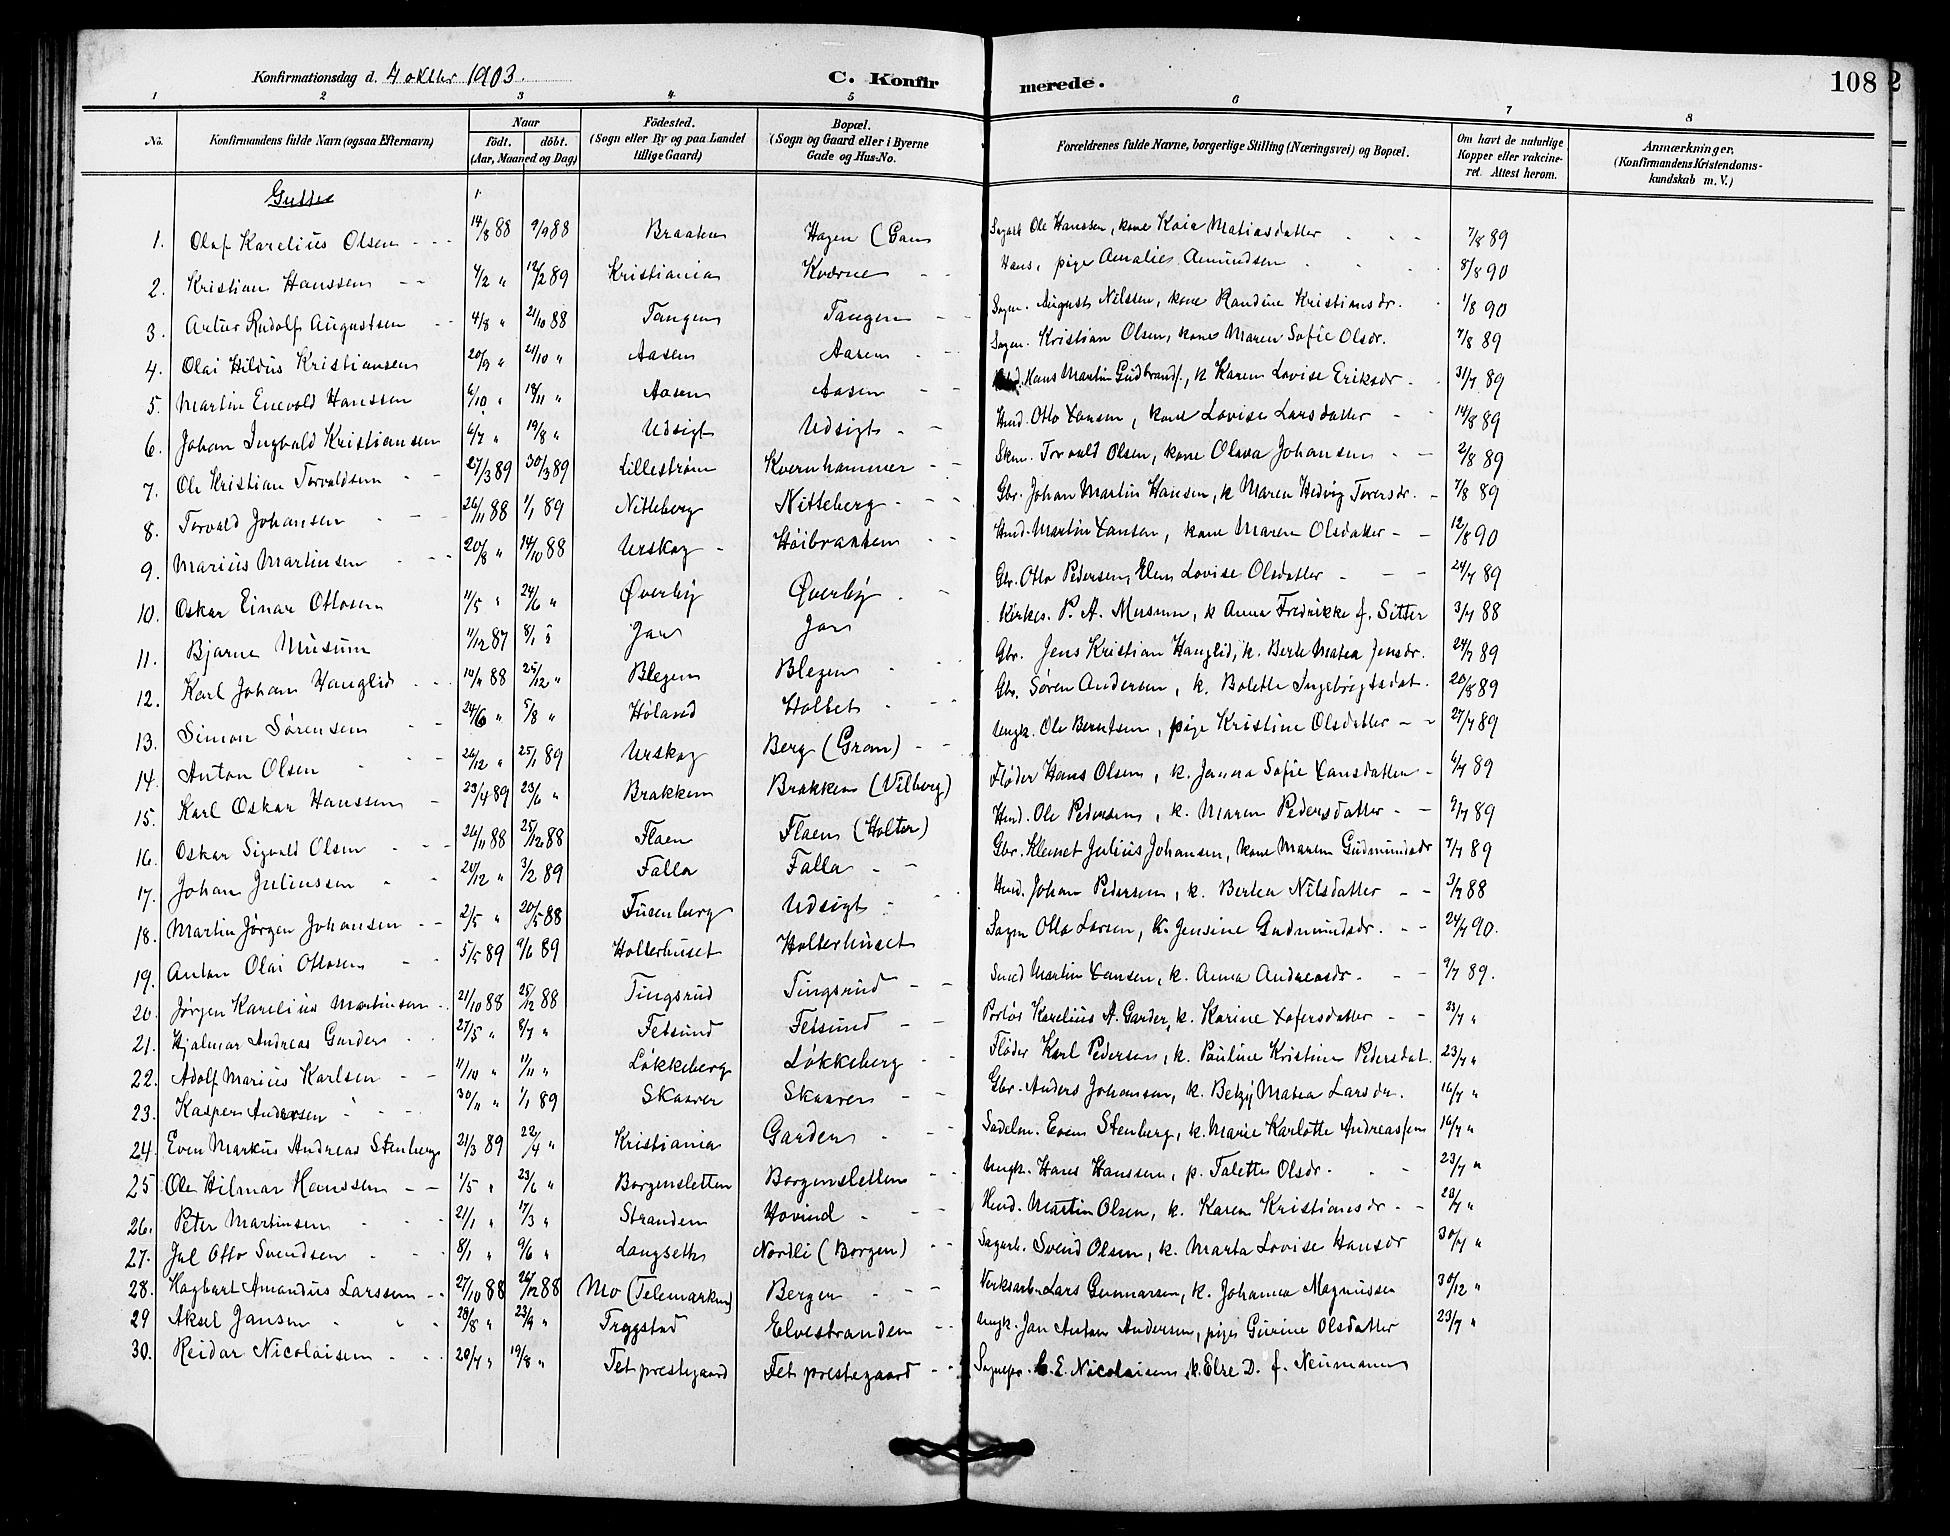 Konfirmationsdag d. 4 oktbr 1903.
C. Konfirmerede.
108
1 2 3 4 5 6 7 8
No. Konfirmandens fulde Navn (ogsaa Efternavn) Naar født. døbt. (Aar, Maaned og Dag) Fødested. (Sogn eller By og paa Landet tillige Gaard) Bopæl. (Sogn og Gaard eller i Byerne Gade og Hus-No. Forældrenes fulde Navne, borgerlige Stilling (Næringsvei) og Bopæl. Om havt de naturlige Kopper eller vakcineret. Attest herom. Anmærkninger, (Konfirmandens Kristendomskundskab m. V.)
Gutter
1. Olaf Karelius Olsen 14/8 88 9/9 88 Braaten Hagen (Gan Sagarb Ole Hanssen, kone Kaia Matiasdatter 7/8 89
2. Kristian Hanssen 4/2 " 12/2 89 Kristiania Kværne Hans, pige Amalie Amundsen 8/8 90
3. Artur Rudolf Augustsen 4/8 " 21/10 88 Tangen Tangen Sagm. August Nilssen, kone Randine Kristiansdr. 1/8 90
4. Olai Hildus Kristiansen 20/9 " 21/10 " Aasen Aasen Sagm. Kristian Olsen, kone Maren Sofie Olsdr. 7/8 89
5. Martin Enevold Hanssen 6/10 " 18/11 " Aasen Aasen Hans Martin Gudbrands., k Karen Lovise Eriksdr. 31/7 89
6. Johan Ingvald Kristiansen 6/7 " 19/8 " Udsigt Udsigt Hmd. Otto Larsen, kone Lovise Larsdatter 14/8 89
7. Ole Kristian Torvaldsen 27/3 89 30/3 89 Lillestrøm Kvernhammer Skm. Torvald Olsen, kone Olava Johansen 2/8 89
8. Torvald Johansen 26/11 88 1/1 89 Nitteberg Nitteberg Gbr. Johan Martin Hansen, k Maren Hedvig Toversdr. 7/8 89
9. Marius Martinsen 20/8 " 14/10 88 Urskog Høibraaten Hmd. Martin Larsen, kone Maren Olsdatter 12/8 90
10. Oskar Einar Ottosen 11/5 " 24/6 " Øverby Øverby Gbr. Otto Pedersen, Elen Lovise Olsdatter 24/7 89
11. Bjarne Musum 11/12 87 8/1 " Jar Jar Kirkes. P. A. Musum, k Anna Fredrikke f. Sitter 3/7 88
12. Karl Johan Hanglid 88 25/12 " Blegen Blegen Gbr. Jens Kristian Hanglid, k. Berte Matea Jensdr. 24/7 89
13. Simon Sørensen 24/6 " 5/8 " Høland Holtet Gbr. Søren Andersen, k. Bolette Ingebrigtsdat. 20/8 89
14. Anton Olsen 26/12 " 25/1 89 Urskog Berg (Gran) Ungk. Ole Berntsen, pige Kristine Olsdatter 27/7 89
15. Karl Oskar Hanssen 23/4 89 23/6 " Brakken Brakken (Vilberg) Fløder Hans Olsen, k. Janna Sofie Larsdatter 6/7 89
16. Oskar Sigvald Olsen 26/11 88 25/12 88 Flaen Flaen (Holter) Hmd. Ole Pedersen, k. Maren Pedersdatter 9/7 89
17. Johan Juliussen 20/12 " 3/2 89 Falla Falla Gbr. Klemet Julius Johansen, kone Maren Gudmundsdr 7/7 89
18. Martin Jørgen Johansen 2/5 " 20/5 88 Fuenberg Udsigt Hmd. Johan Pedersen, k. Bertea Nilsdatter 3/7 88
19. Anton Olai Ottosen 5/5 89 9/6 89 Holterhuset Holterhuset Sagm Otto Larsen, k. Jensine Gudmundsdr. 24/7 90.
20. Jørgen Karelius Martinsen 21/10 88 25/12 88 Tingsrud Tingsrud Smed Martin Larsen, k. Anna Andreasdr. 9/7 89.
21. Hjalmar Andreas Garder 27/5 " 8/7 " Fetsund Fetsund Karelius A. Garder, k. Karine Tofersdatter 23/7 "
22. Adolf Marius Karlsen 11/10 " 11/11 " Løkkeberg Løkkeberg Fløder Karl Pedersen, k. Pauline Kristine Pedersdat. 23/7 "
23. Kasper Andersen 30/11 " 1/1 89 Skaarer Skaarer Gbr. Anders Johansen, k. Betzy Matea Larsdr. 16/7 "
24 Even Markus Andreas Stenberg 21/3 89 22/4 " Kristiania Garder Sadelm. Even Stenberg, k. Marie Karlotte Andreassen 16/7 "
25 Ole Hilmar Hanssen 1/5 " 23/6 " Borgensletten Borgensletten Ungk. Hans Hanssen, p. Talette Olsdr. 23/7 "
26. Peter Martinsen 21/1 " 17/3 " Stranden Hovind Hmd. Martin Olsen, k. Karen Kristiansdr. 23/7 "
27. Jul Otto Svendsen 8/1 " 9/6 " Langseth Nordli (Borgen) Sagarb. Svend Olsen, k. Marta Lovise Hansdr 30/7 "
28. Hagbart Amandus Larssen 27/10 88 26/12 88 Mo (Telemarken) Bergen Verksarb. Lars Gunnarsen, k. Johanna Magnussen 30/12 "
29 Aksel Jansen 28/8 " 23/9 " Trygstad Elvestranden Ungk. Jan Anton Andersen, pige Gurine Olsdatter 23/7 "
30. Reidar Nicolaisen 20/7 " 19/8 " Fet prestegaard Fet prestegaard Sognepr. C. E. Nicolaisen, k. Elze D. f. Neumann